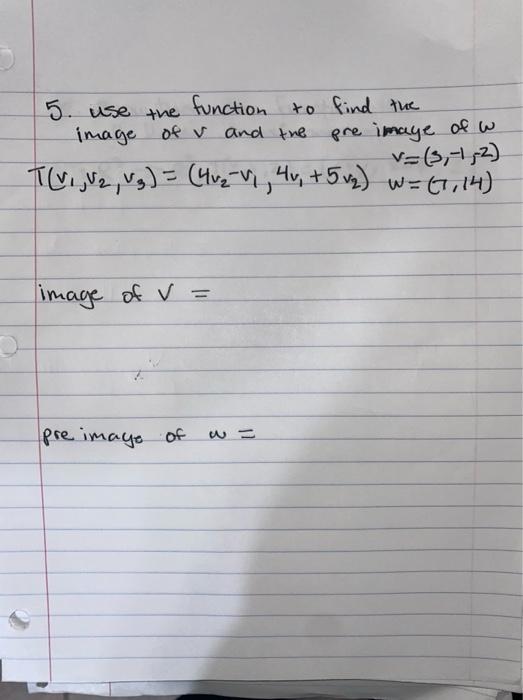 5. use the function to find the
image of v and the pre image of w
v=(3,-1,-2)
T(v₁,v₂,v₃) = (4v₂-v₁, 4v₁+5v₂) w=(7,14)
image of v =
pre image of w =